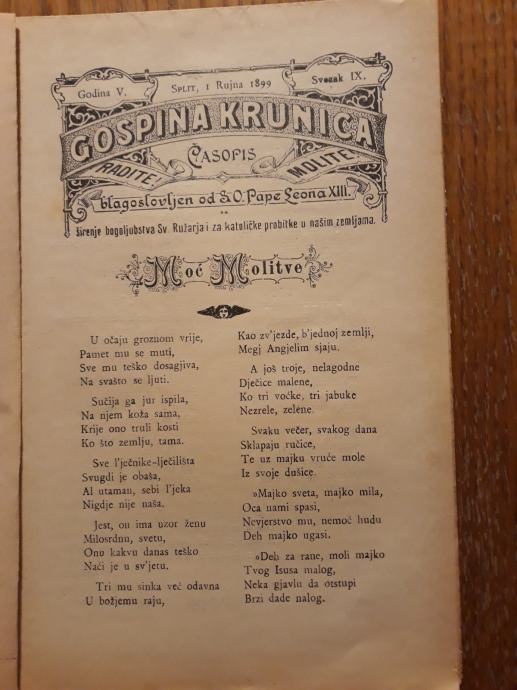 Godina V.
SPLIT, 1 Rujna 1899
Svezak IX.
GOSPINA KRUNICA
RADITE!
ČASOPIS
MOLITE!
blagoslovljen od S. O. Pape Leona XIII.
za
širenje bogoljubstva Sv. Ružarja i za katoličke probitke u našim zemljama.
Moć Molitve
U očaju groznom vrije,
Pamet mu se muti,
Sve mu teško dosagjiva,
Na svašto se ljuti.
Sučija ga jur ispila,
Na njem koža sama,
Krije ono truli kosti
Ko što zemlju, tama.
Sve l'ječnike-lječilišta
Svugdi je obaša,
Al utaman, sebi l'jeka
Nigdje nije naša.
Jest, on ima uzor ženu
Milosrdnu, svetu,
Onu kakvu danas teško
Naći je u sv'jetu.
Tri mu sinka već odavna
U božjemu raju,
Kao zv'jezde, b'jednoj zemlji,
Megj Angjelim sjaju.
A još troje, nelagodne
Dječice malene,
Ko tri voćke, tri jabuke
Nezrele, zelene.
Svaku večer, svakog dana
Sklapaju ručice,
Te uz majku vruće mole
Iz svoje dušice.
»Majko sveta, majko mila,
Oca nami spasi,
Nevjerstvo mu, nemoć hudu
Deh majko ugasi.
»Deh za rane, moli majko
Tvog Isusa malog,
Neka gjavlu da otstupi
Brzi dade nalog.